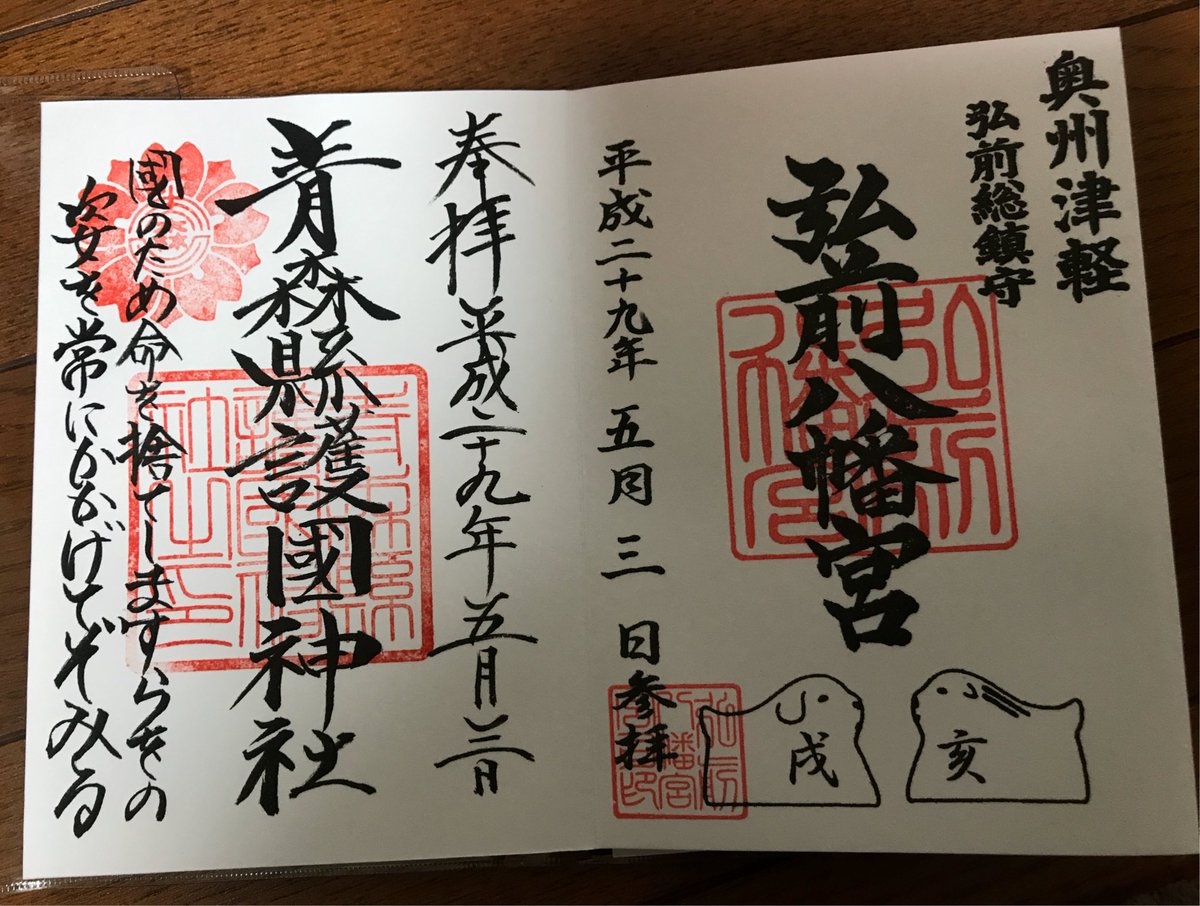 奥州津軽
弘前総鎮守
弘前八幡宮
平成二十九年 五月 三 日参拝
戌
亥
奉拝 平成二十九年五月三日
青森縣護國神社
國のため命を捨てしますらをの
姿を常にかかげてぞみる